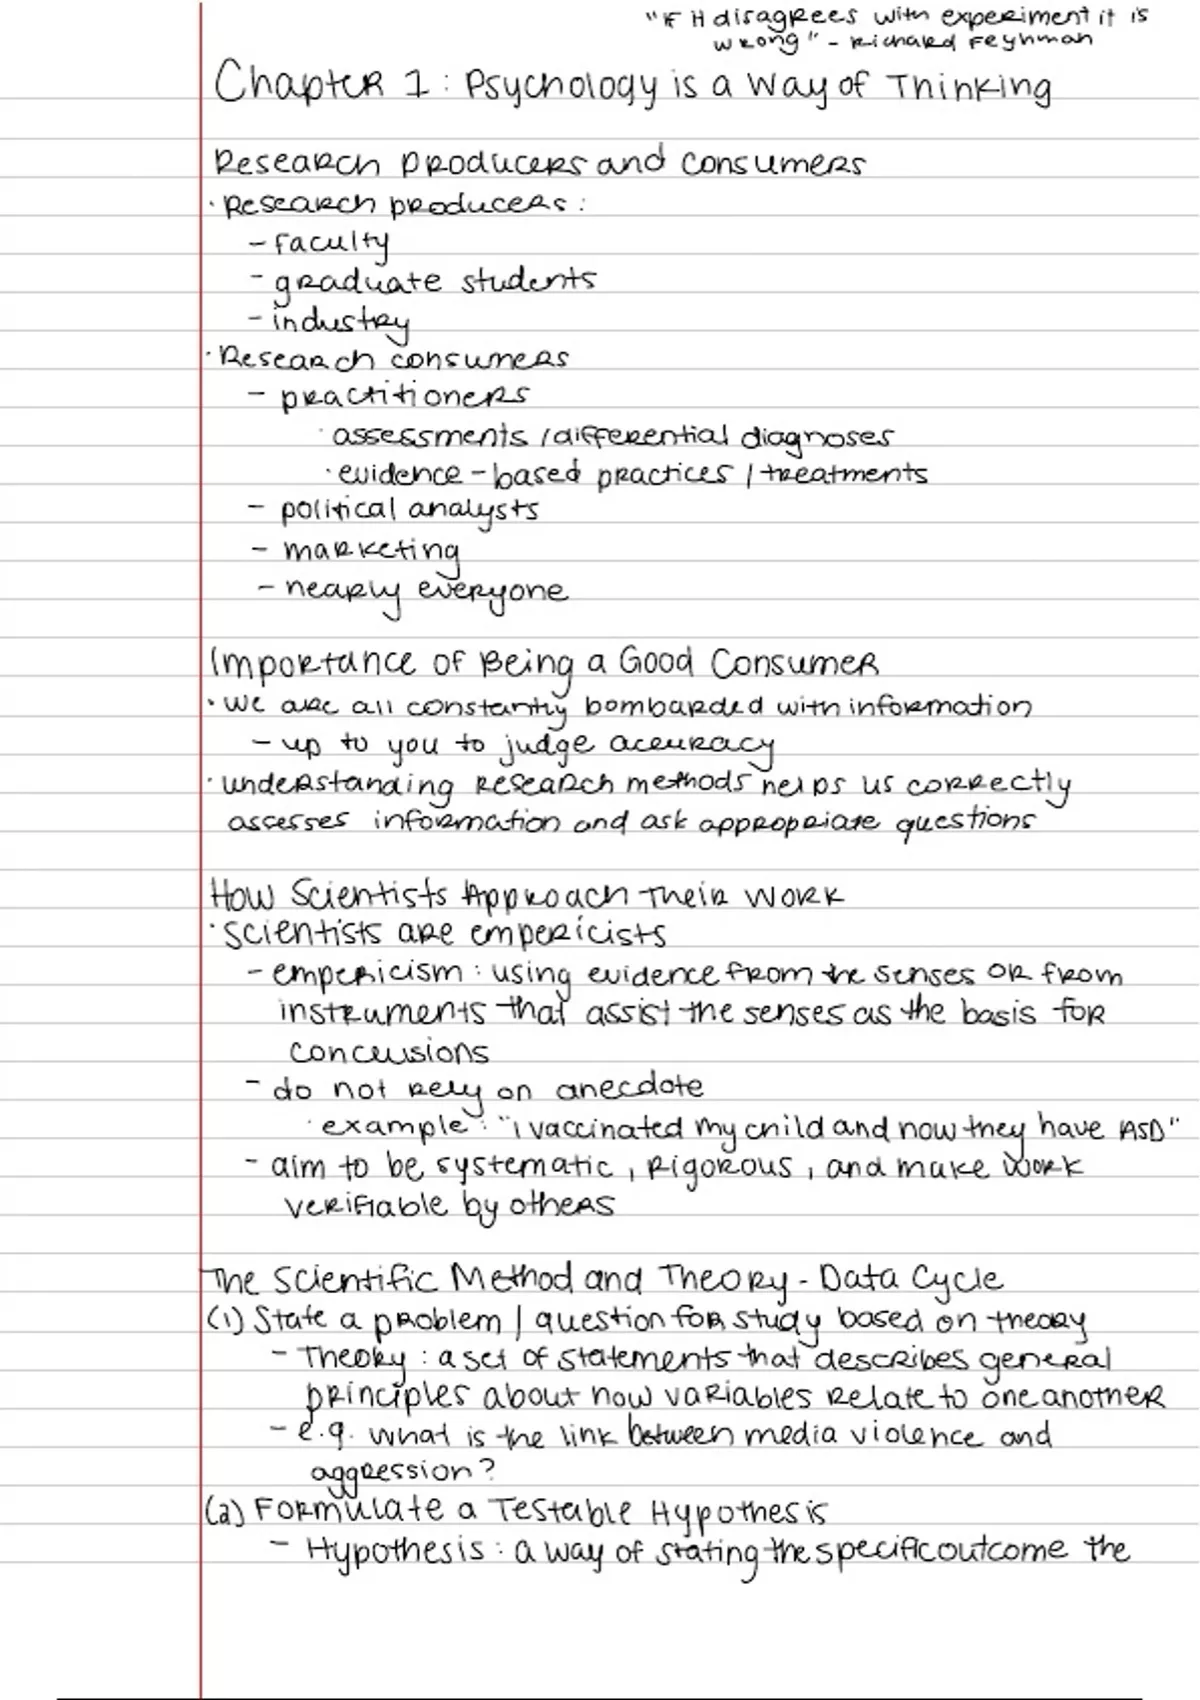 "If it disagrees with experiment it is
wrong" - Richard Feynman
Chapter 1: Psychology is a Way of Thinking
Research Producers and Consumers
· Research producers:
- faculty
- graduate students
- industry
· Research consumers
- practitioners
· assessments / differential diagnoses
· evidence-based practices / treatments
- political analysts
- marketing
- nearly everyone
Importance of Being a Good Consumer
· we are all constantly bombarded with information
- up to you to judge accuracy
· understanding research methods helps us correctly
assesses information and ask appropriate questions
How Scientists Approach Their Work
· Scientists are empericists
- empericism: using evidence from the senses or from
instruments that assist the senses as the basis for
conclusions
- do not rely on anecdote
· example: "i vaccinated my child and now they have ASD"
- aim to be systematic, rigorous, and make work
verifiable by others
The Scientific Method and Theory-Data Cycle
(1) State a problem / question for study based on theory
- Theory: a set of statements that describes general
principles about how variables relate to one another
- e.g. what is the link between media violence and
aggression?
(2) Formulate a Testable Hypothesis
- Hypothesis: a way of stating the specific outcome the